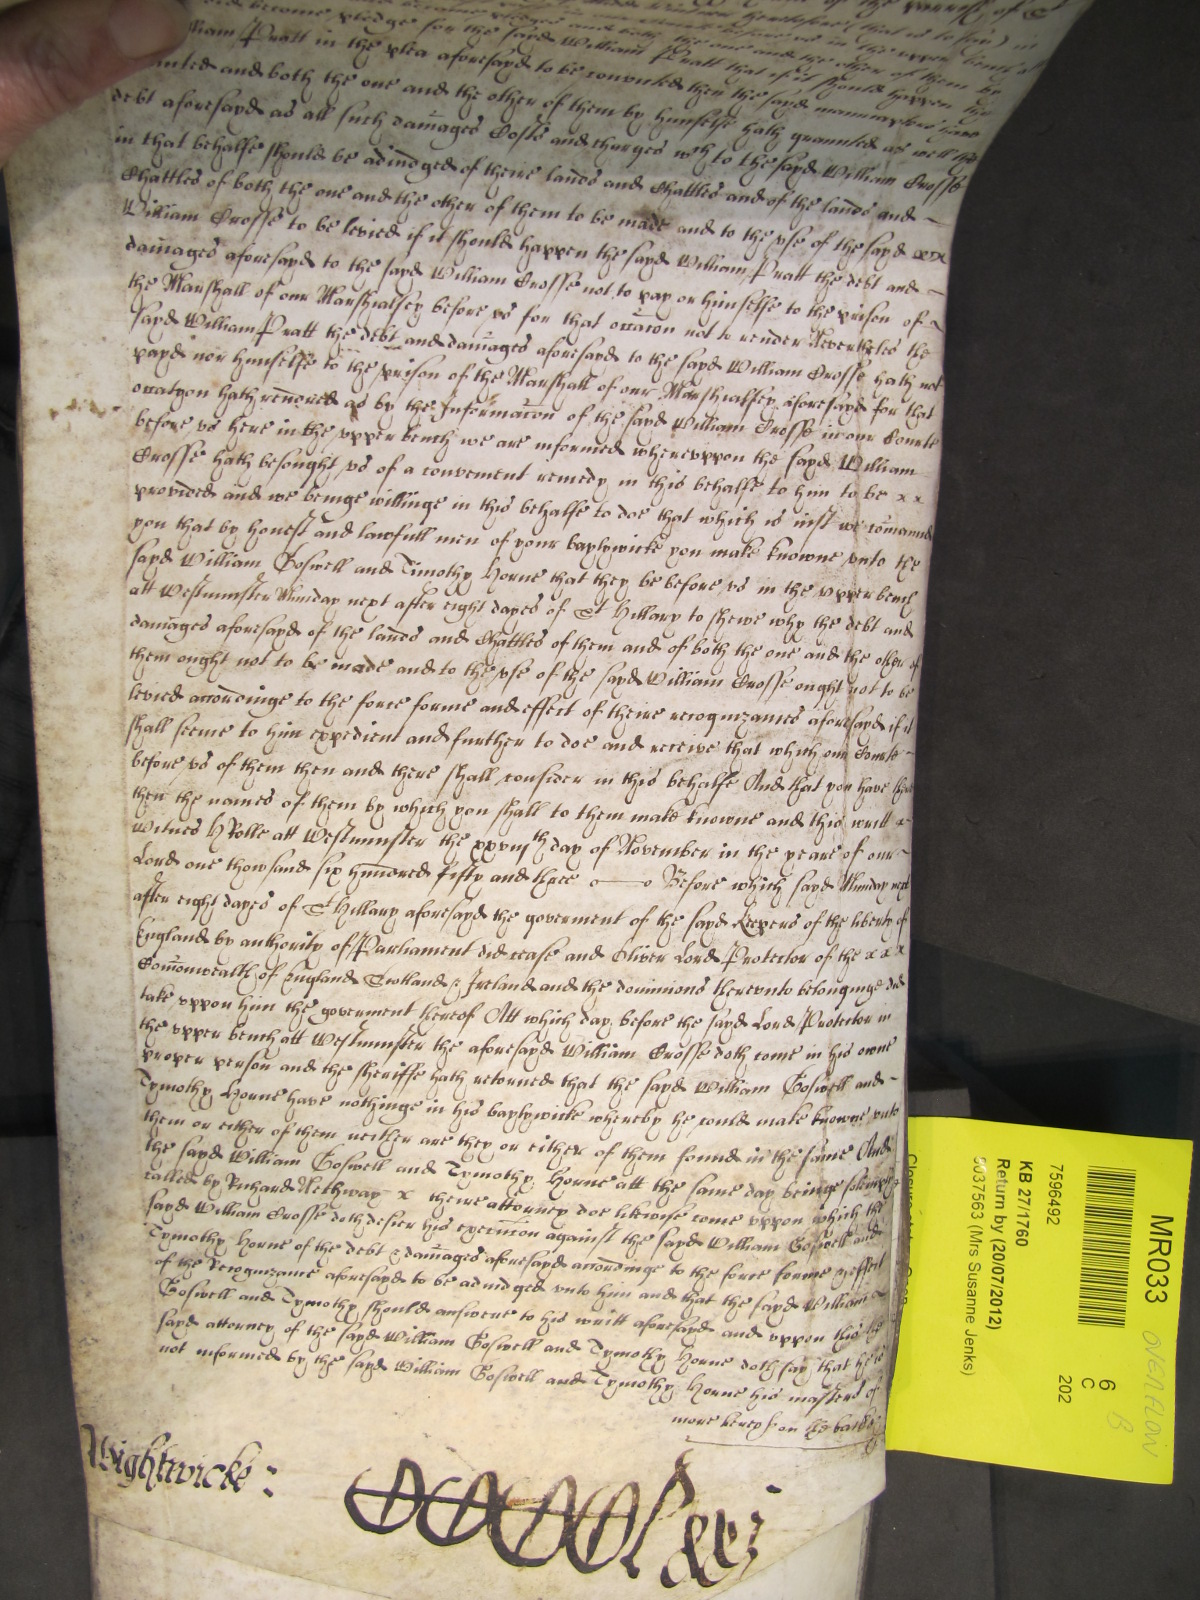 become pledge for the sayd William Pratt that if it should happen the
William Pratt in the plea aforesayd to be convicted then the sayd manucaptors have
graunted and both the one and the other of them by himselfe hath graunted as well the
debt aforesayd as all such damages Costs and charges wch to the sayd William Crosse
in that behalfe should be adiudged of theire lands and Chattles and of the lands and
Chattles of both the one and the other of them to be made and to the vse of the sayd
William Crosse to be levied if it should happen the sayd William Pratt the debt and
damages aforesayd to the sayd William Crosse not to pay or himselfe to the prison of
the Marshall of our Marshalsey before vs for that occacon not to render Nevertheles the
sayd William Pratt the debt and damages aforesayd to the sayd William Crosse hath not
payd nor himselfe to the prison of the Marshall of our Marshalsey aforesayd for that
occatyon hath rendred as by the Informacon of the sayd William Crosse in our Courte
before vs here in the vpper bench we are informed wherevppon the sayd William
Crosse hath besought vs of a convenient remedy in this behalfe to him to be x x
provided and we beinge willinge in this behalfe to doe that which is iust we comannd
you that by honest and lawfull men of your baylywicke you make knowne vnto the
sayd William Goswell and Timothy Horne that they be before vs in the vpper bench
att Westminster Munday next after eight dayes of St Hillary to shewe why the debt and
damages aforesayd of the lands and Chattles of them and of both the one and the other of
them ought not to be made and to the vse of the sayd William Crosse ought not to be
levied accordinge to the force forme and effect of theire recognizances aforesayd if it
shall seeme to him expedient and further to doe and receive that which our Courte
before vs of them then and there shall consider in this behalfe And that you have there
then the names of them by which you shall to them make knowne and this writt x
Witnes H Rolle att Westminster the xxviijth day of November in the yeare of our
Lord one thowsand six hundred fifty and three Before which sayd Munday next
after eight dayes of St Hillary aforesayd the goverment of the sayd Keepers of the liberty of
England by authority of Parliament did cease and Oliver Lord Protector of the x x x
Comonwealth of England Scotland & Ireland and the dominions therevnto belonginge did
take vppon him the goverment thereof Att which day before the sayd Lord Protector in
the vpper bench att Westminster the aforesayd William Crosse doth come in his owne
proper person and the sheriffe hath retorned that the sayd William Goswell and
Tymothy Horne have nothinge in his baylywicke whereby he could make knowne vnto
them or either of them neither are they or either of them found in the same And
the sayd William Goswell and Tymothy Horne att the same day beinge solemply
called by Richard x theire attorney doe likewise come vppon which the
sayd William Crosse doth desier his execucon against the sayd William Goswell and
Tymothy Horne of the debt & damages aforesayd accordinge to the force forme & effect
of the Recognizance aforesayd to be adiudged vnto him and that the sayd William
Goswell and Tymothy should answere to his writt aforesayd and vppon this the
sayd attorney of the sayd William Goswell and Tymothy Horne doth say that he is
not informed by the sayd William Goswell and Tymothy Horne his masters of
more hereof on the backe
Wightwicke:
MR033
OVERFLOW
6
B
C
202
7596492
KB 27/1760
Return by (20/07/2012)
5037563 (Mrs Susanne Jenks)